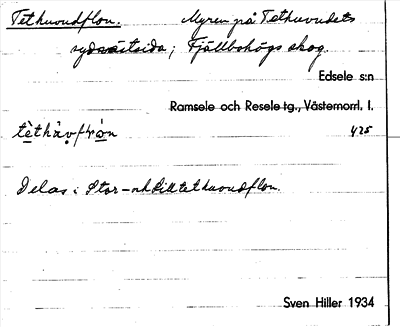 Tethuvudflon. Myren på Tethuvudets
sydvästsida; Fjällbohögs skog.
Edsele s:n
Ramsele och Resele tg., Västernorrl. l.
425
Delas i Stor- och Lilltethuvudflon.
Sven Hiller 1934